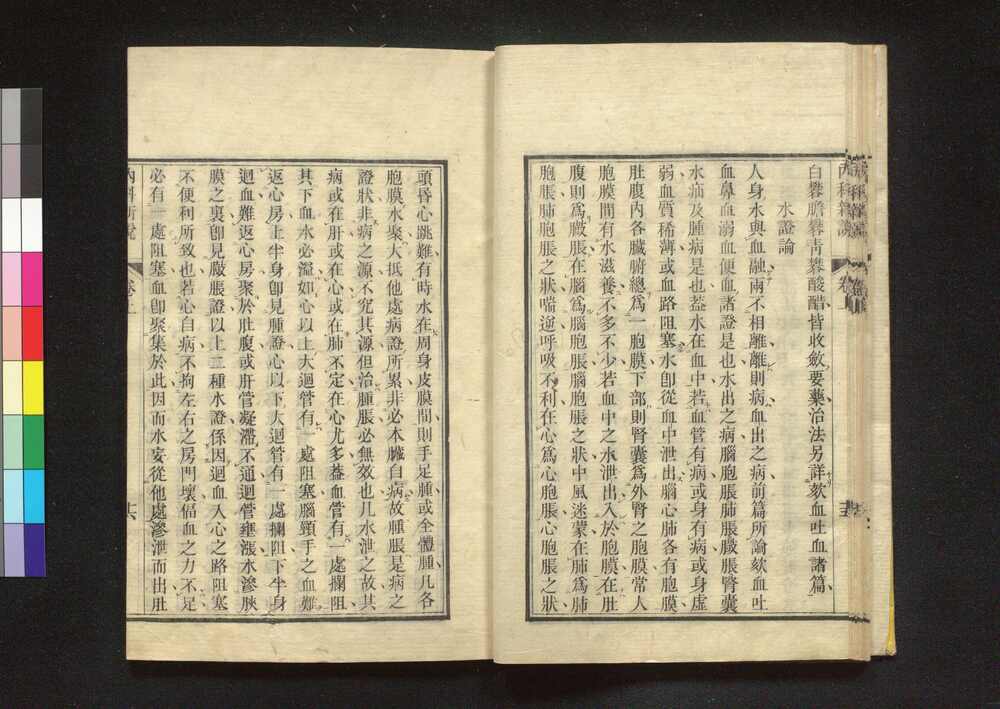 白礬膽礬靑礬酸醋皆收斂要藥治法另詳欬血吐血諸篇
水證論
人身水與血融兩不相離離則病血出之病前篇所論欬血吐
血鼻血溺血便血諸證是也水出之病腦胞脹肺脹臌脹腎囊
水疝及腫病是也葢水在血中若血管有病或身有病或身虛
弱血質稀薄或血路阻塞水卽從血中泄出腦心肺各有胞膜
肚腹內各臟腑總爲一胞膜下部則腎囊爲外腎之胞膜常人
胞膜間有水滋養不多不少若血中之水泄出入於胞膜在肚
腹則爲臌脹在腦爲腦胞脹腦胞脹之狀中風迷蒙在肺爲肺
胞脹肺胞脹之狀喘逆呼吸不利在心爲心胞脹心胞脹之狀
頭昏心跳難有時水在周身皮膜間則手足腫或全體腫凡各
胞膜水聚大抵他處病證所累非必本臟自病故腫脹是病之
證狀非病之源不究其源但治腫脹必無效也凡水泄之故其
病或在肝或在心或在肺不定在心尤多葢血管有一處攔阻
其下血水必溢如心以上大迴管有一處阻塞腦頸手之血難
返心房上半身卽見腫證心以下大迴管有一處攔阻下半身
迴血難返心房聚於肚腹或肝管凝滯不通迴管壅漲水滲脥
膜之裏卽見臌脹證以上二種水證係因迴血入心之路阻塞
不便利所致也若心自病不拘左右之房門壞偪血之力不足
必有一處阻塞血卽聚集於此因而水妄從他處滲泄而出肚